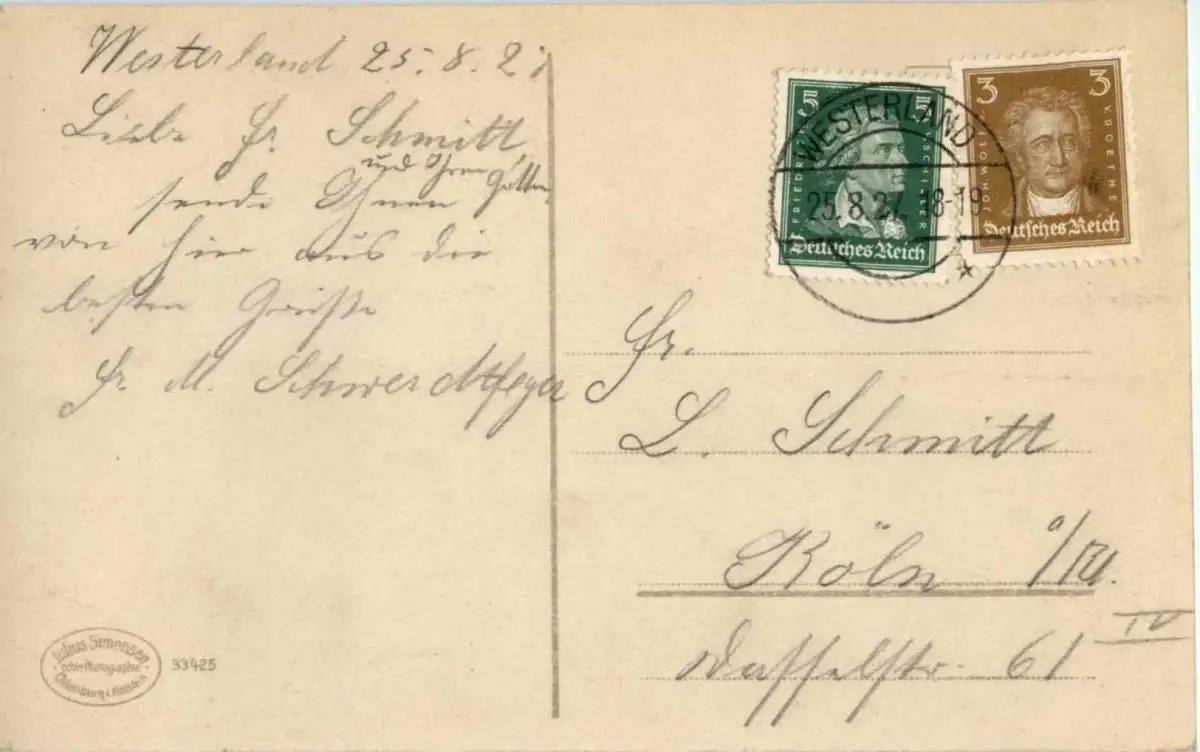 Westerland 25.8.27
Liebe Fr. Schmitt,
und Ihren Gatten
sende Ihnen
von hier aus die
besten Grüße
Fr. M. Schwerdtfeger
5 5
FRIEDRICH V SCHILLER
Deutsches Reich
3 3
JOH WOLFG V GOETHE
Deutsches Reich
WESTERLAND
25.8.27. 18-19
*
Fr.
L. Schmitt
Köln a/Rh.
IV
Dasselstr. 61
Julius Simonsen
echte Photographie
Oldenburg i. Holstein
33425